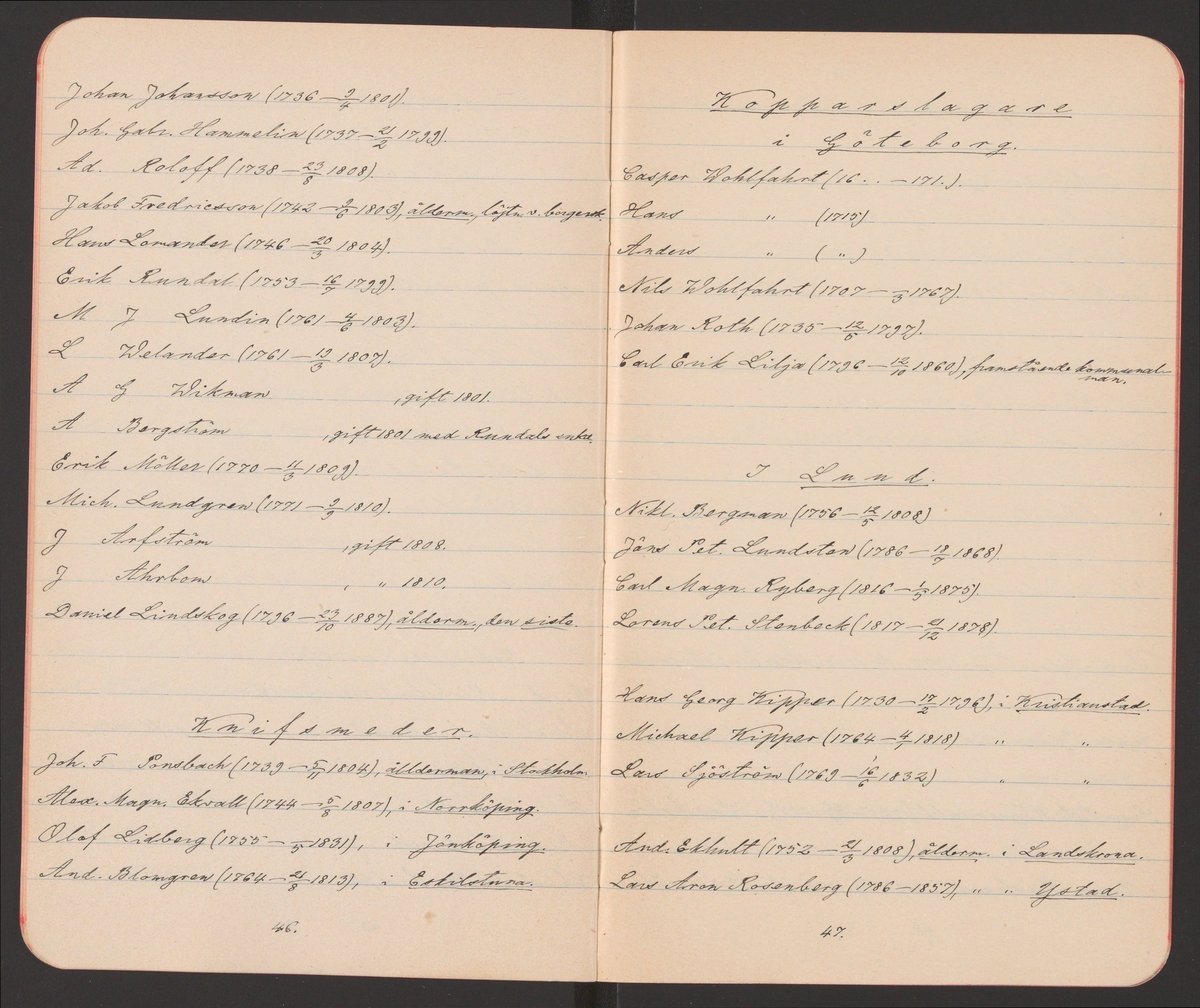 Johan Johansson (1736 — 9/4 1801).
Joh. Gabr. Hammelin (1737 — 21/2 1799).
Ad. Roloff (1738 — 23/8 1808).
Jakob Fredricsson (1742 — 9/6 1803), ålderm., löjtn. v.
Hans Lomander (1746 — 20/3 1804).
Erik Rundal (1753 — 16/7 1799).
M J Lundin (1761 — 4/6 1803).
L Welander (1761 — 13/3 1807).
A G Wikman , gift 1801.
A Bergström , gift 1801 med Rundals enka.
Erik Möller (1770 — 11/3 1809).
Mich. Lundgren (1771 — 9/3 1810).
J Arfström , gift 1808.
J Ahrbom , " 1810.
Daniel Lindskog (1796 — 23/10 1887), ålderm., den siste.
Knifsmeder.
Joh. F Ponsbach (1739 — 5/11 1804), ållderman, i Stockholm.
Alex. Magn. Ekvall (1744 — 5/8 1807), i Norrköping.
Olof Lidberg (1755 — /5 1831), i Jönköping.
And. Blomgren (1764 — 21/8 1813), i Eskilstuna.
46.
Kopparslagare
i Göteborg.
Casper Wohlfahrt (16 . . — 171 . ).
Hans " (1715)
Anders " ( " )
Nils Wohlfahrt (1707 — /3 1767).
Johan Roth (1735 — 12/5 1797).
Carl Erik Lilja (1796 — 12/10 1860), framstående kommunal-
man.
I Lund.
Nikl. Bergman (1756 — 12/5 1808)
Jöns Pet. Lundsten (1786 — 18/7 1868).
Carl Magn. Ryberg (1816 — 1/5 1875).
Lorens Pet. Stenbeck (1817 — 21/12 1878).
Hans Georg Kipper (1730 — 17/2 1796), i Kristianstad.
Michael Kipper (1764 — 4/1 1818) " "
Lars Sjöström (1769 — 16/6 1832) " "
And. Ekhult (1752 — 21/3 1808), ålderm. i Landskrona.
Lars Aron Rosenberg (1786 — 1857), " " Ystad.
47.